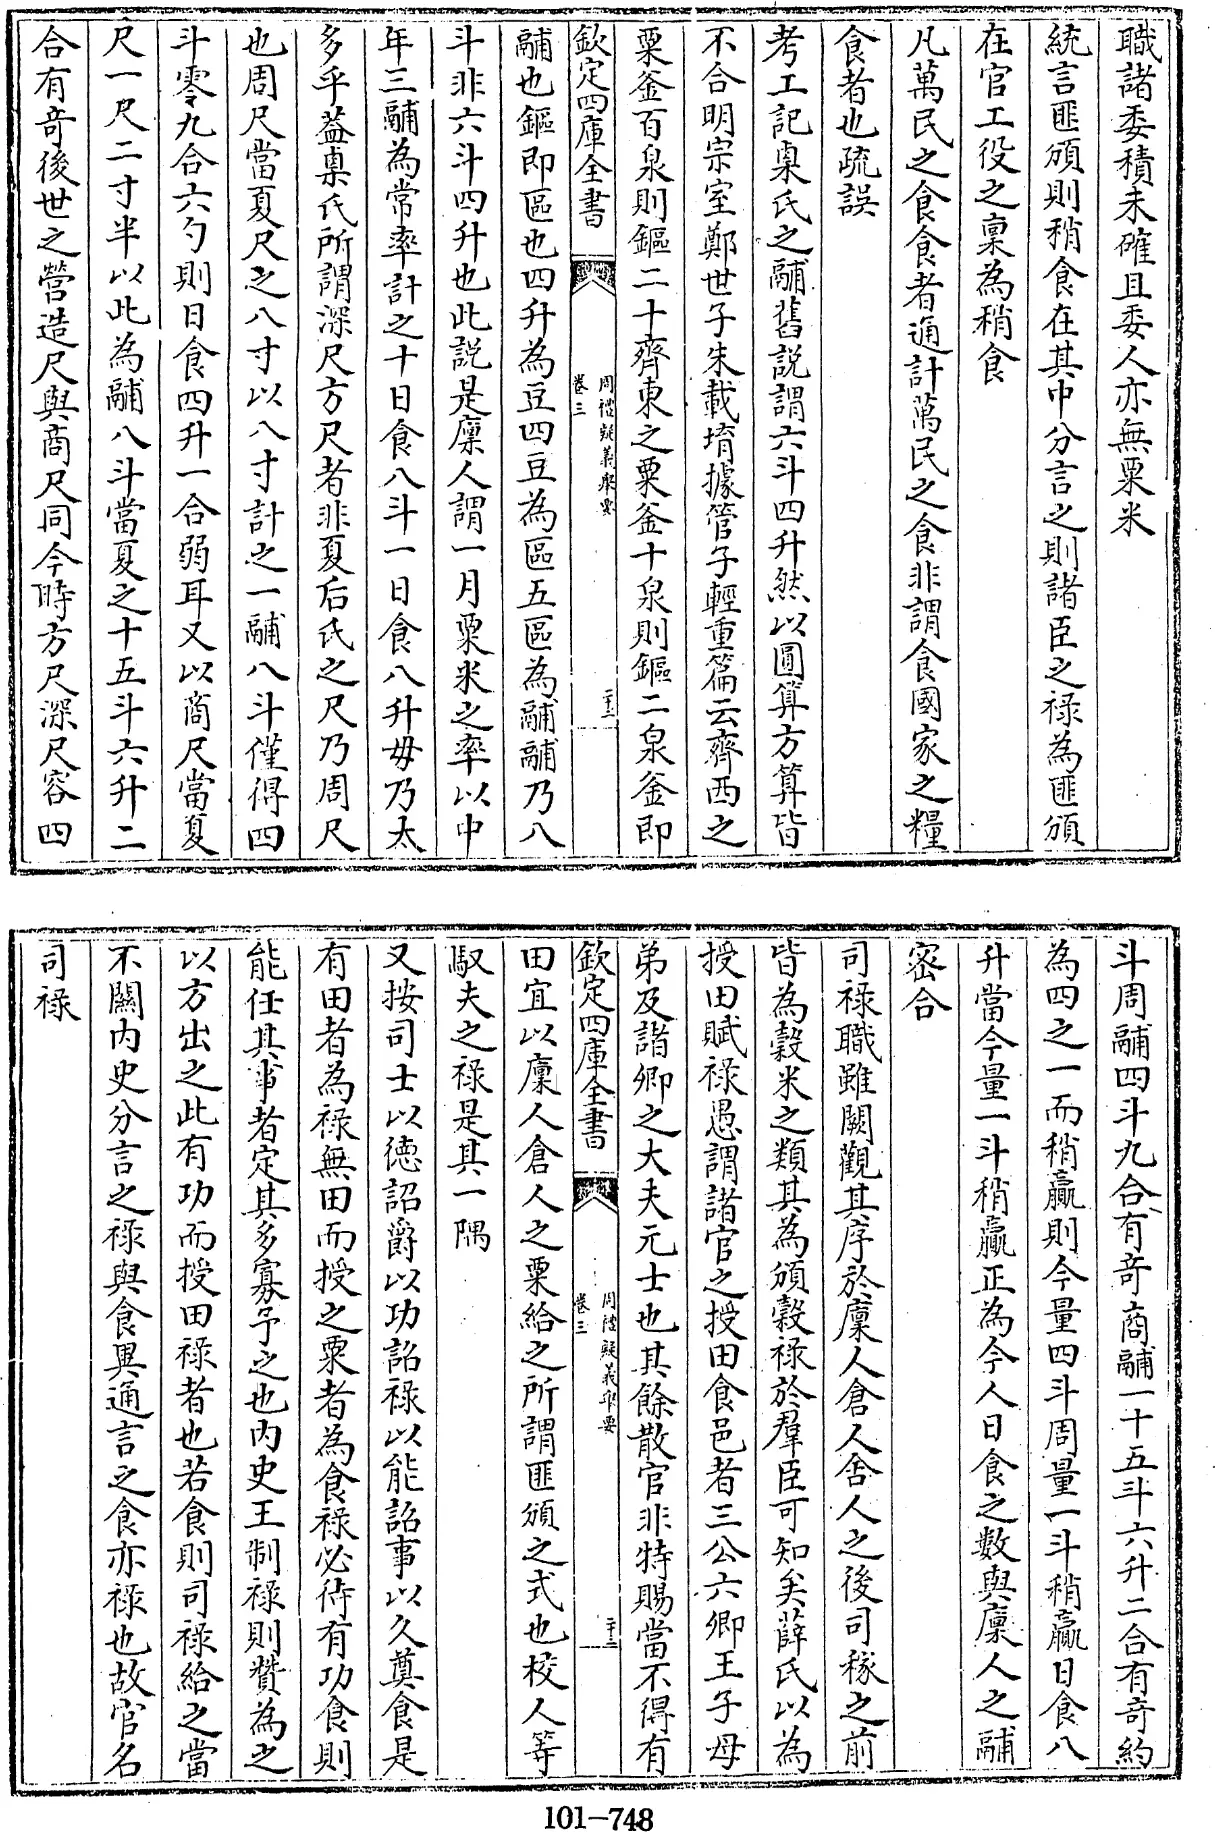 職諸委積未確且委人亦無粟米
統言匪頒則稍食在其中分言之則諸臣之禄為匪頒
在官工役之稟為稍食
凡萬民之食食者通計萬民之食非謂食國家之糧
食者也疏誤
考工記㮚氏之鬴舊説謂六斗四升然以圓算方算皆
不合明宗室鄭世子朱載堉據管子輕重篇云齊西之
粟釜百泉則鏂二十齊東之粟釜十泉則鏂二泉釜即
欽定四庫全書
周禮疑義舉要
卷三
二十二
鬴也鏂即區也四升為豆四豆為區五區為鬴鬴乃八
斗非六斗四升也此説是廩人謂一月粟米之率以中
年三鬴為常率計之十日食八斗一日食八升毋乃太
多乎葢㮚氏所謂深尺方尺者非夏后氏之尺乃周尺
也周尺當夏尺之八寸以八寸計之一鬴八斗僅得四
斗零九合六勺則日食四升一合弱耳又以商尺當夏
尺一尺二寸半以此為鬴八斗當夏之十五斗六升二
合有竒後世之營造尺與商尺同今時方尺深尺容四
斗周鬴四斗九合有竒商鬴一十五斗六升二合有竒約
為四之一而稍贏則今量四斗周量一斗稍贏日食八
升當今量一斗稍贏正為今人日食之數與廩人之鬴
密合
司禄職雖闕觀其序於廩人倉人舍人之後司稼之前
皆為穀米之類其為頒穀禄於羣臣可知矣薛氏以為
授田賦禄愚謂諸官之授田食邑者三公六卿王子母
弟及諸卿之大夫元士也其餘散官非特賜當不得有
欽定四庫全書
周禮疑義舉要
卷三
二十三
田宜以廩人倉人之粟給之所謂匪頒之式也校人等
馭夫之禄是其一隅
又按司士以徳詔爵以功詔禄以能詔事以久奠食是
有田者為禄無田而授之粟者為食禄必待有功食則
能任其事者定其多寡予之也内史王制禄則贊為之
以方出之此有功而授田禄者也若食則司禄給之當
不關内史分言之禄與食異通言之食亦禄也故官名
司禄
101-748